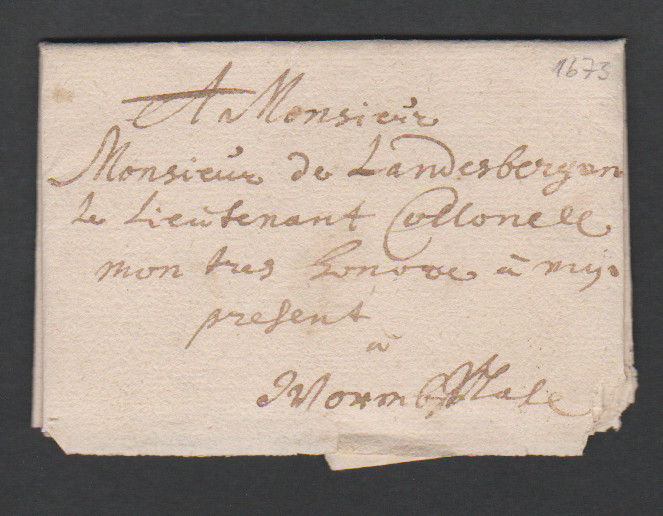 1673
A Monsieur
Monsieur de Landesbergen
le Lieutenant Collonell
mon tres honore à my
present
à